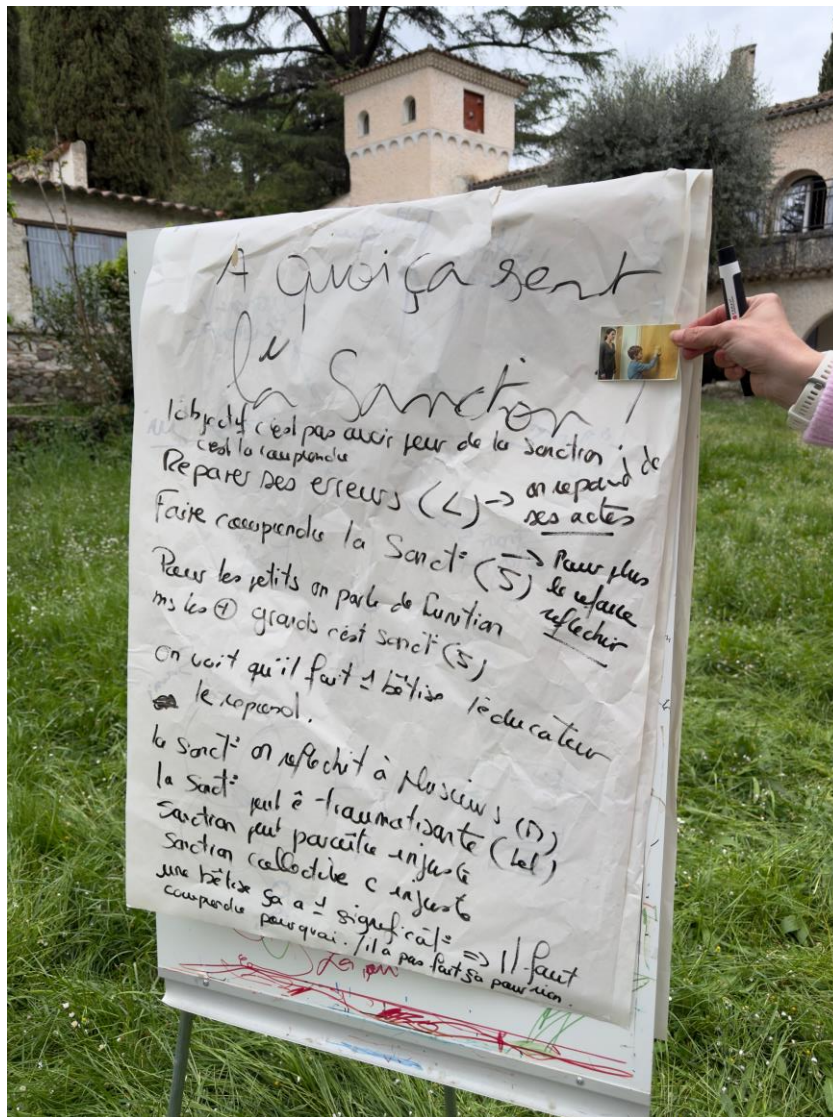 A quoi ça sert
la Sanction !
l'objectif c'est pas avoir peur de la sanction ;
c'est la comprendre
Reparer ses erreurs (L) → on repond de
ses actes
Faire comprendre la Sanct° (S) → Pour plus
le refaire
reflechir
Pour les petits on parle de Punition
ms les ⊕ grands c'est sanct° (S)
On voit qu'il fait 1 bêtise l'éducateur
le reprend.
la sanct° on reflechit à plusieurs (D)
la sanct° peut ê traumatisante (Lel)
Sanction peut paraître injuste
Sanction collective c injuste
une bêtise sa a 1 significat° => Il faut
comprendre pourquoi. / il a pas fait sa pour rien.